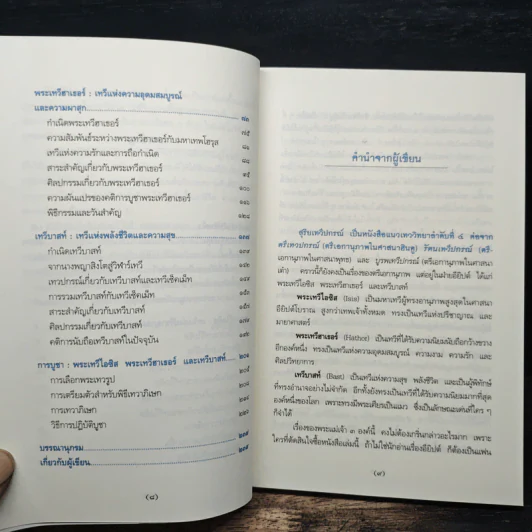 พระเทวีฮาเธอร์ : เทวีแห่งความอุดมสมบูรณ์
และความผาสุก
กำเนิดพระเทวีฮาเธอร์
ความสัมพันธ์ระหว่างพระเทวีฮาเธอร์กับมหาเทพโฮรุส
เทวีแห่งความรักและการถือกำเนิด
สาระสำคัญเกี่ยวกับพระเทวีฮาเธอร์
ศิลปกรรมเกี่ยวกับพระเทวีฮาเธอร์
ความผันแปรของคติการบูชาพระเทวีฮาเธอร์
พิธีกรรมและวันสำคัญ
เทวีบาสท์ : เทวีแห่งพลังชีวิตและความสุข
กำเนิดเทวีบาสท์
จากนางพญาสิงโตสู่วิฬาร์เทวี
เทวปกรณ์เกี่ยวกับเทวีบาสท์และเทวีเซ็คเม็ท
การรวมเทวีบาสท์กับเทวีเซ็คเม็ท
สาระสำคัญเกี่ยวกับเทวีบาสท์
ศิลปกรรมเกี่ยวกับเทวีบาสท์
คติการนับถือเทวีบาสท์ในปัจจุบัน
การบูชา : พระเทวีไอซิส พระเทวีฮาเธอร์ และเทวีบาสท์
การเลือกพระเทวรูป
การเตรียมตัวสำหรับพิธีเทวาภิเษก
การเทวาภิเษก
วิธีการปฏิบัติบูชา
บรรณานุกรม
เกี่ยวกับผู้เขียน
(๘)
คำนำจากผู้เขียน
เป็นหนังสือแนวเทววิทยาลำดับที่ ๔ ต่อจาก
ตรีเทวปกรณ์ (ตรีเอกานุภาพในศาสนาฮินดู) รัตนเทวีปกรณ์ (ตรี-
เอกานุภาพในศาสนาพุทธ) และ บูรพเทวีปกรณ์ (ตรีเอกานุภาพในศาสนา
เต๋า) คราวนี้ก็ยังคงเป็นเรื่องของตรีเอกานุภาพ แต่อยู่ในฝ่ายอียิปต์ ได้แก่
พระเทวีไอซิส พระเทวีฮาเธอร์ และเทวีบาสท์
พระเทวีไอซิส (Isis) เป็นมหาเทวีผู้ทรงอานุภาพสูงสุดในศาสนา
อียิปต์โบราณ สูงกว่าเทพเจ้าทั้งหมด ทรงเป็นเทวีแห่งปรีชาญาณ และ
มายาศาสตร์
พระเทวีฮาเธอร์ (Hathor) เป็นเทวีที่ได้รับความนิยมนับถือกว้างขวาง
อีกองค์หนึ่ง ทรงเป็นเทวีแห่งความอุดมสมบูรณ์ ความงาม ความรัก และ
ศิลปวิทยาการ
เทวีบาสท์ (Bast) เป็นเทวีแห่งความสุข พลังชีวิต และเป็นผู้พิทักษ์
ที่ทรงอำนาจอย่างไม่จำกัด อีกทั้งยังทรงเป็นเทวีที่ได้รับความนิยมมากที่สุด
องค์หนึ่งของโลก เพราะทรงมีพระเศียรเป็นแมว ซึ่งเป็นลักษณะเด่นที่ใคร ๆ
ก็จำได้
เรื่องของพระแม่เจ้า ๓ องค์นี้ คงไม่ต้องเกริ่นกล่าวอะไรมาก เพราะ
ใครที่ตัดสินใจซื้อหนังสือเล่มนี้ ถ้าไม่ใช่นักอ่านเรื่องอียิปต์ ก็ต้องเป็นแฟน
(๙)